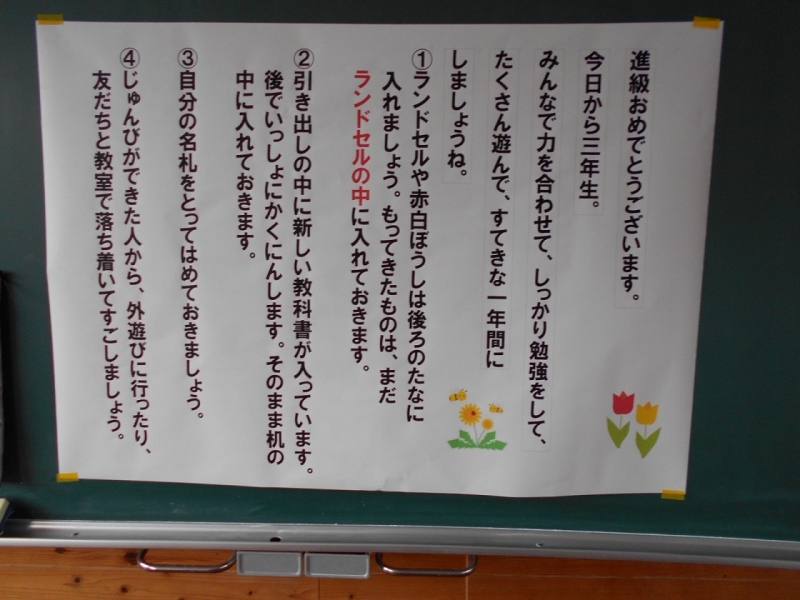 進級おめでとうございます。
今日から三年生。
みんなで力を合わせて、しっかり勉強をして、
たくさん遊んで、すてきな一年間に
しましょうね。
①ランドセルや赤白ぼうしは後ろのたなに
入れましょう。もってきたものは、まだ
ランドセルの中に入れておきます。
②引き出しの中に新しい教科書が入っています。
後でいっしょにかくにんします。そのまま机の
中に入れておきます。
③自分の名札をとってはめておきましょう。
④じゅんびができた人から、外遊びに行ったり、
友だちと教室で落ち着いてすごしましょう。